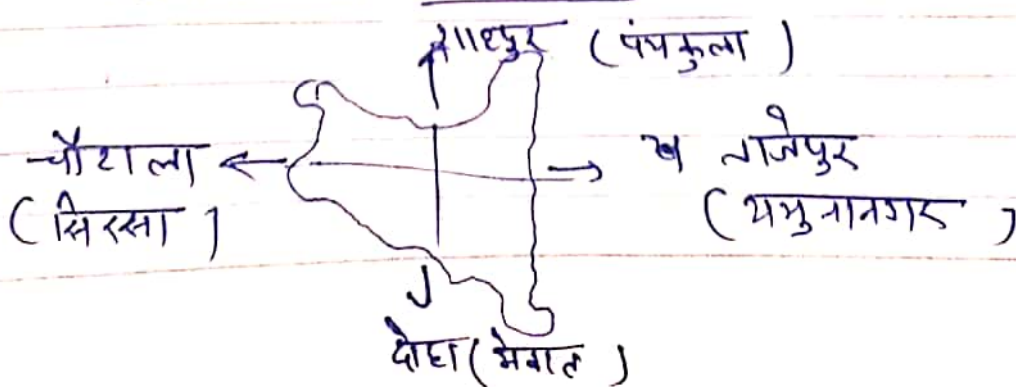 गाहपुर (पंचकुला)
चौटाला
(सिरसा)
ताजेपुर
(यमुनानगर)
दोहा (मेवात)